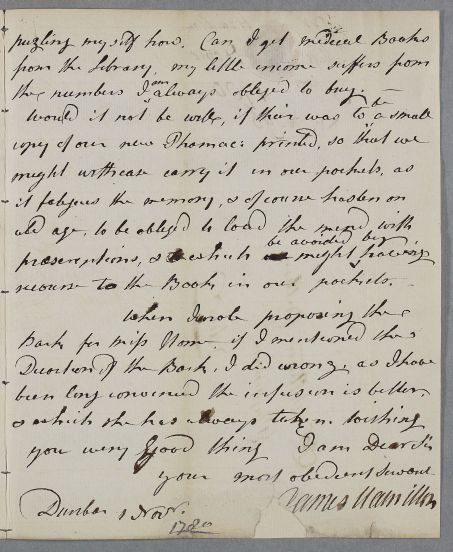 puzling myself how. Can I get medical Books
from the Library, my little income suffers from
the numbers I am always obliged to buy.
Would it not be well, if their was to be a small
copy of our new Pharmac: printed, so that we
might with ease carry it in our pockets, as
it fatigues the memory, & of course hasten on
old age, to be obliged to load the mind with
prescriptions, & which might be avoided by having
recourse to the Book in our pockets.
When I wrote proposing the
Bark for Miss Home if I mentioned the
Decoction of the Bark, I did wrong, as I have
been long convinced the infusion is better,
& which she has always taken. Wishing
you very good thing I am Dear Sir
your most obedient Servant
James Hamilton
Dunbar 1 Novr.
1780